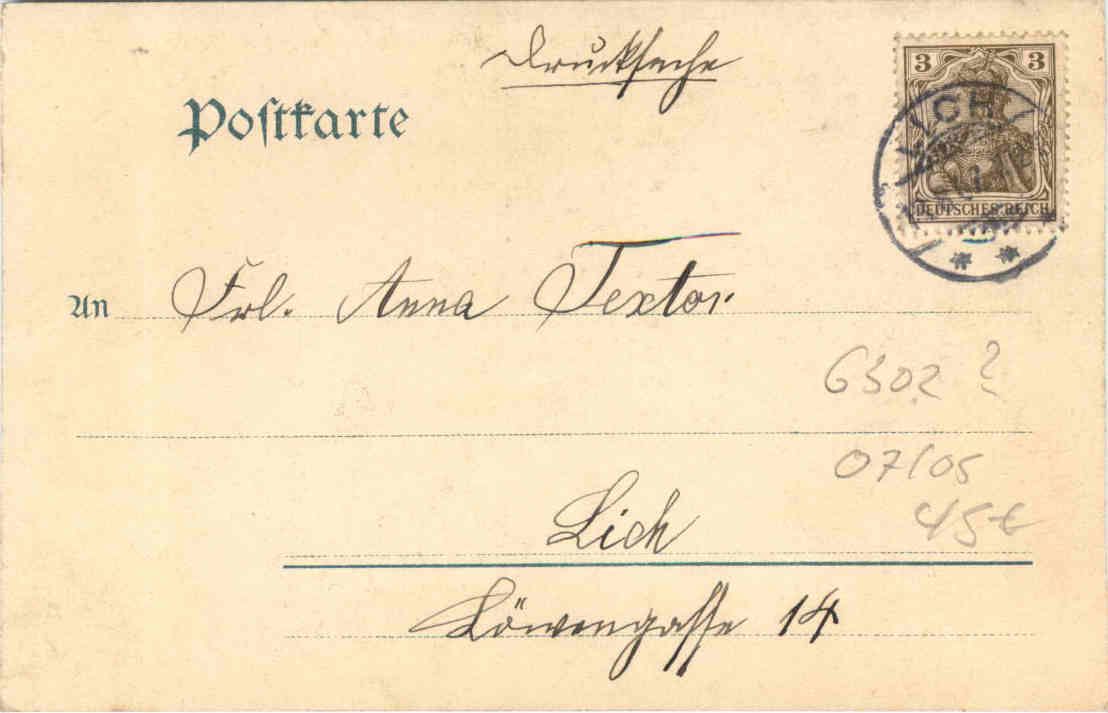 Drucksache
Postkarte
3 3
LICH
DEUTSCHES REICH
An Frl. Anna Textor.
6302 ?
07/05
45€
Lich
Löwengasse 14